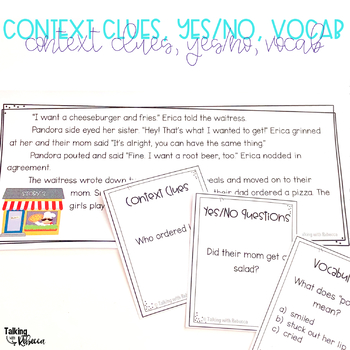 CONTEXT CLUES, YES/NO, VOCAB
context clues, yes/no, vocab
"I want a cheeseburger and fries." Erica told the waitress.
Pandora side eyed her sister. "Hey! That's what I wanted to get!" Erica grinned
at her and their mom said "It's alright, you can have the same thing"
Pandora pouted and said "Fine. I want a root beer, too." Erica nodded in
agreement.
The waitress wrote down eals and moved on to their
mom. S their dad ordered a pizza. The
girls play
Context Clues
Who ordered
Yes/No Questions
Did their mom get
salad?
Vocabul
What does "po
mean?
a) smiled
b) stuck out her lip
c) cried
© Talking with Rebecca
Talking
with
Rebecca